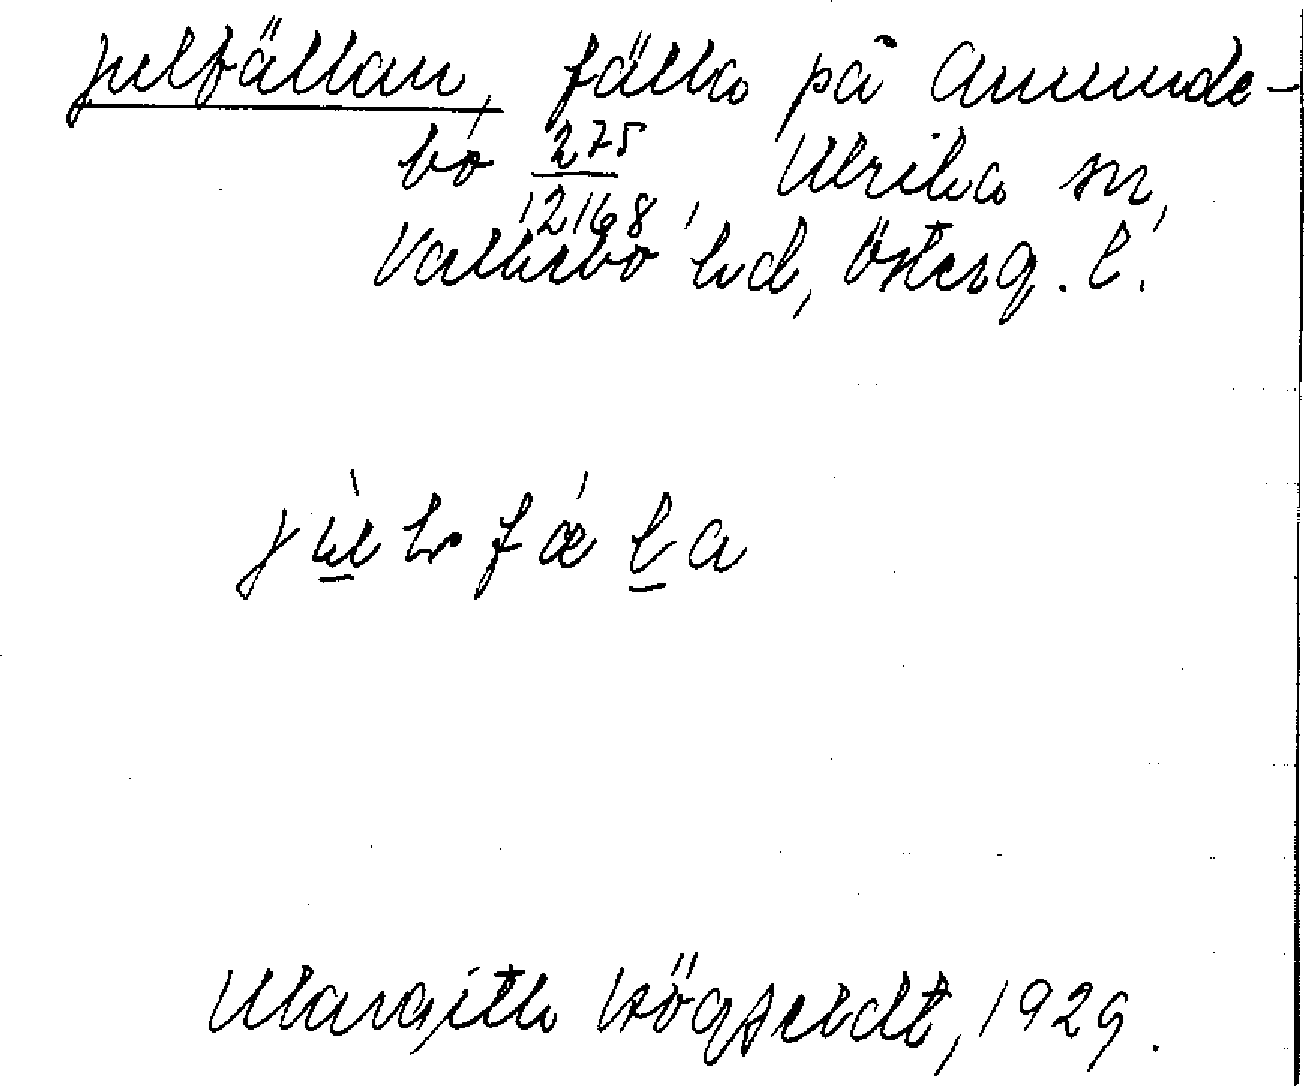 julfällan, fälla på Amunde-
bo 275/12168, Ulrika sn,
Valkebo hd, Österg. l.
Margith Högfeldt, 1929.